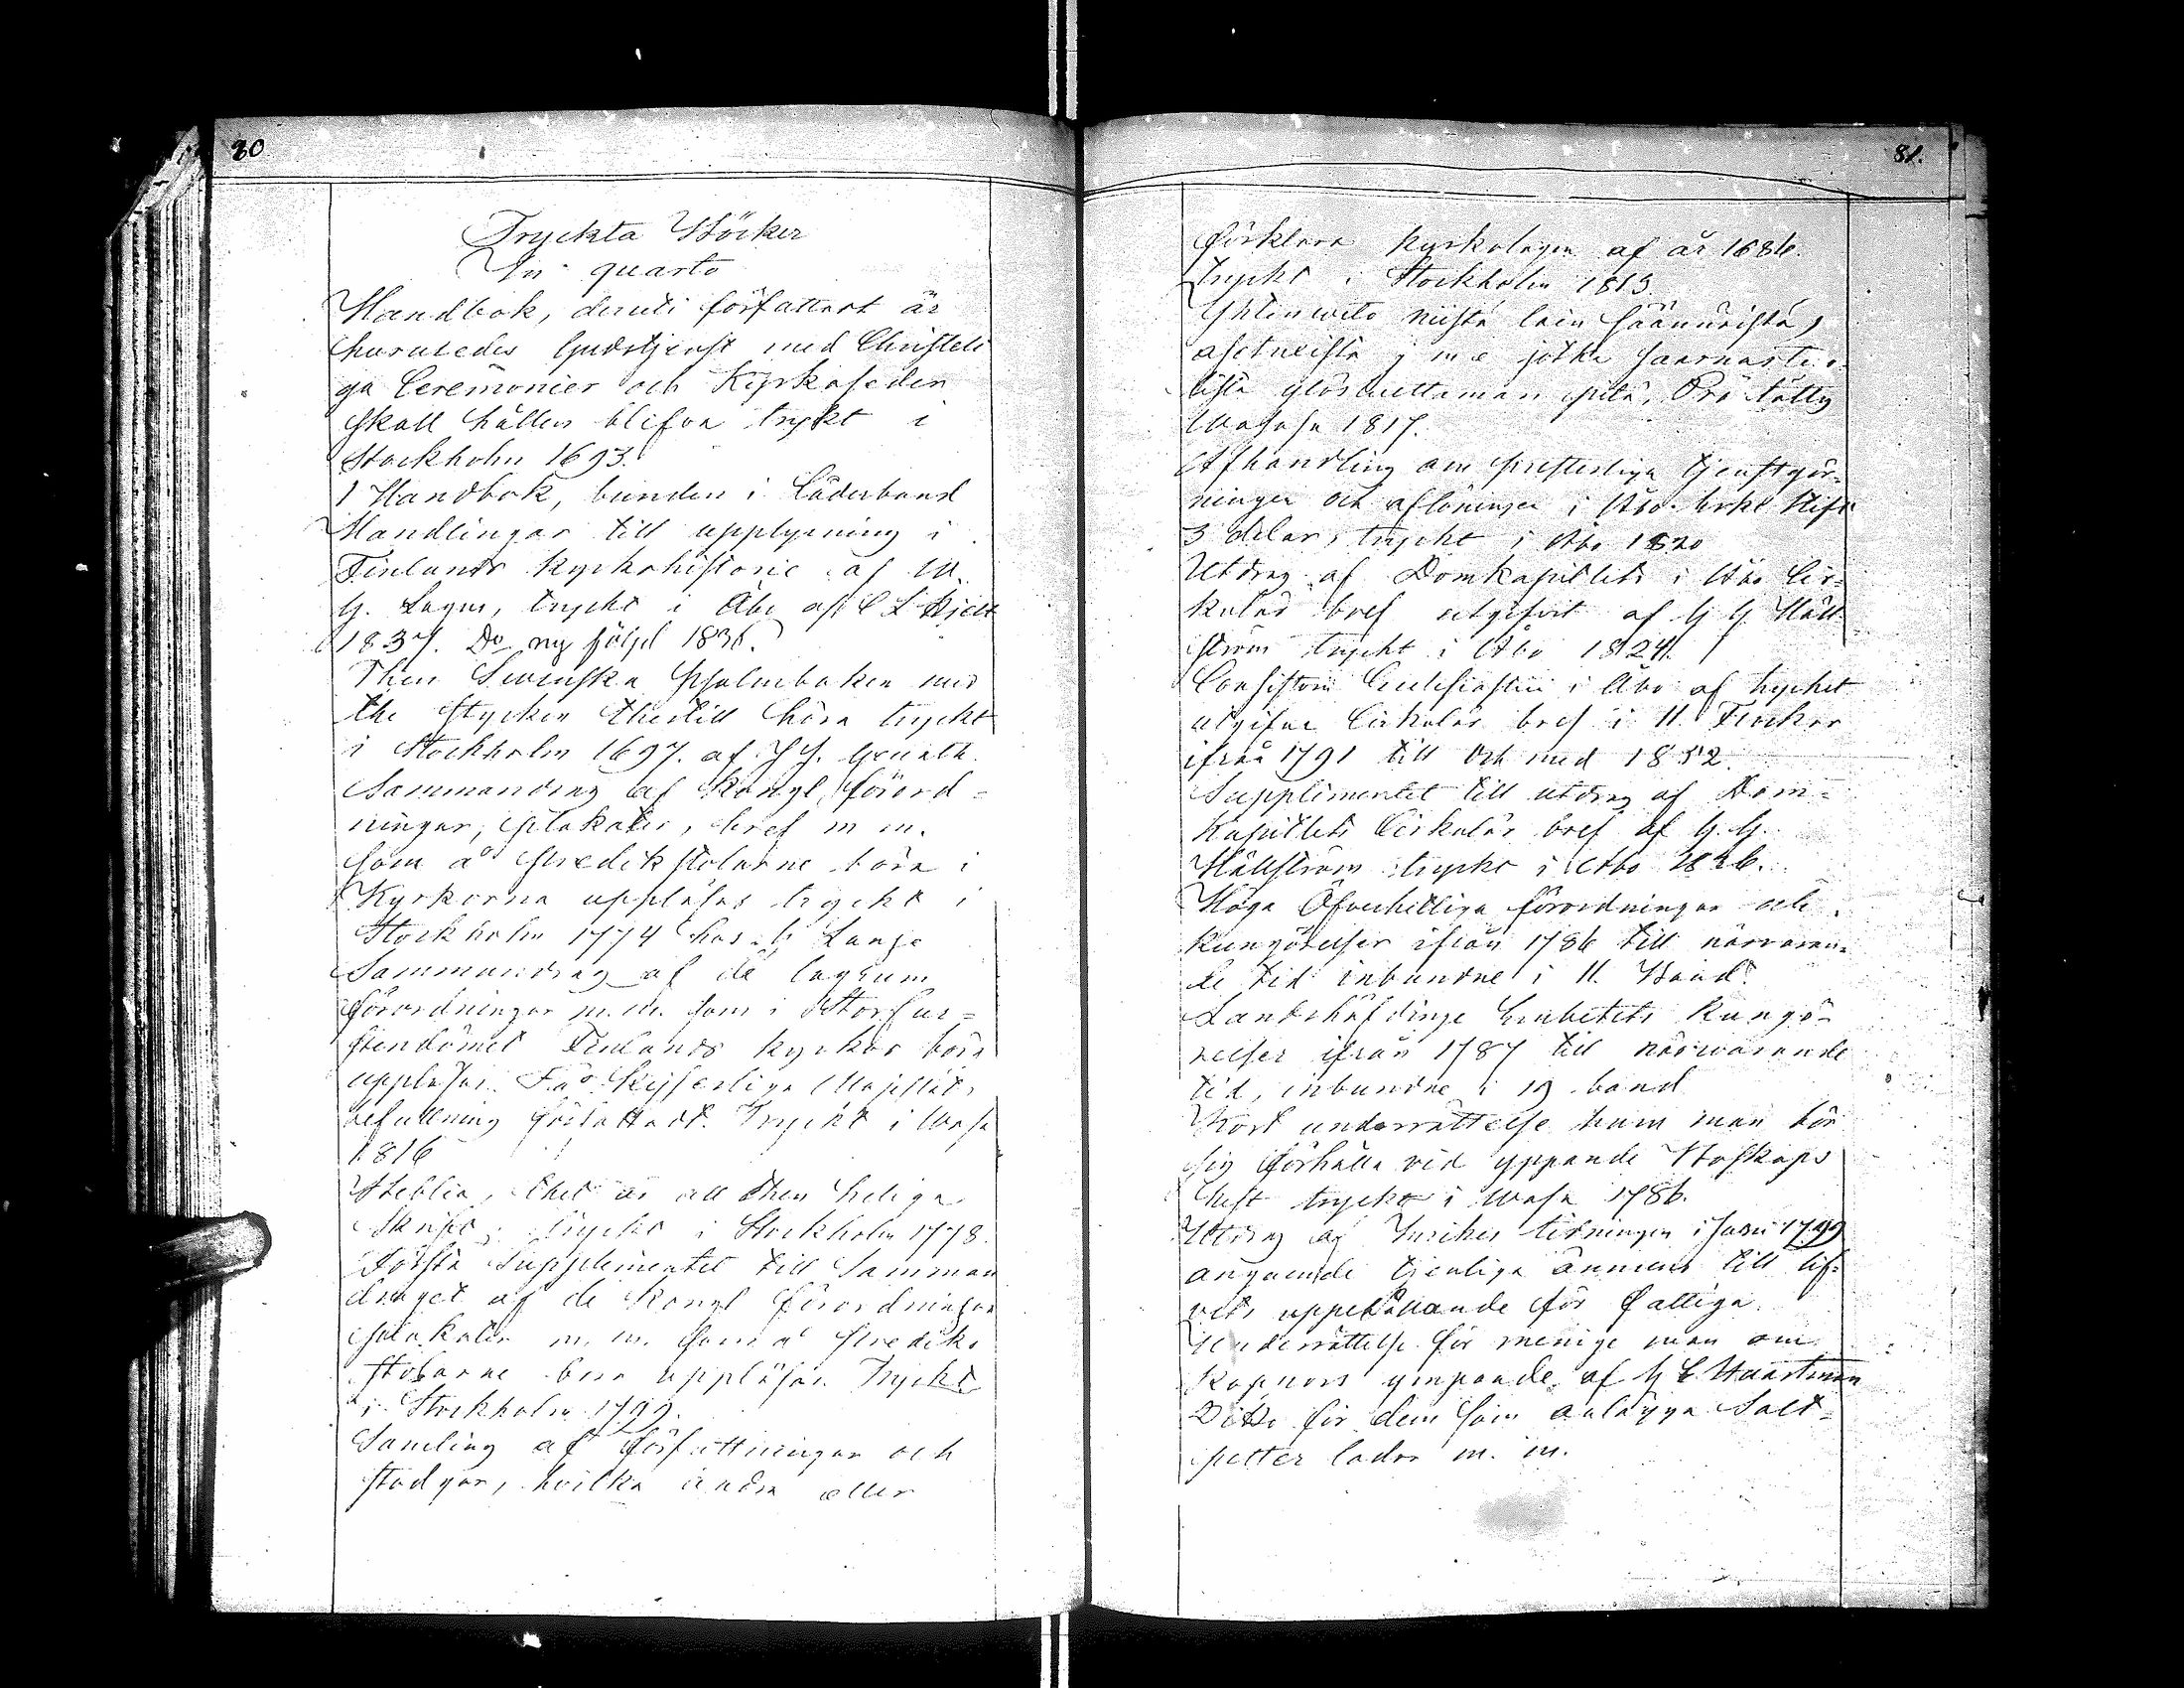 80
Tryckta Böcker
In quarto
Handbok, deruti författat är
huruledes Gudstjenst med Christeli
ga Ceremonier och Kyrkoseder
skall hållas blifva trykt i
Stockholm 1693.
1 Handbok, bunden i Läderband
Handlingar till upplysning i
Finlands kyrkohistorie af W.
G. Lagus, tryckt i Åbo af C L Hjelt
1837. Do ny följd 1836.
Then Swenska Psalmboken med
the stycken thertill höra tryckt
i Stockholm 1697. af J. G.
Sammandrag af Kongl. förord=
ningar, plakater, bref m m.
som å predikstolarne böra i
Kyrkorna uppläsas tryckt i
Stockholm 1774 hos Lange
Sammandrag af de lagrum
förordningar m.m. som i Storfur=
stendömet Finlands kyrkor böra
uppläsas. På Kejserliga Majestäts
befallning författadt. Tryckt i Wasa
1816
Biblia, thet är all then heliga
Skrift, tryckt i Stockholm 1778.
Första Supplementet till Samman
draget af de Kongl förordningar
plakater m. m. som å prediks
stolarne böra uppläsas Tryckt
i Stockholm 1799.
Samling af författningar och
stadgar, hvilka ändra eller
81.
förklara kyrkolagen af år 1686.
tryckt i Stockholm 1813.
Yhteinweto niistä lain säännöistä,
asetuxista j. m. e jotka saarnastuo-
lista ylösluettaman pitä, Präntätty
Wasasa 1817.
Afhandling om presterliga tjenstgör-
ningar och aflöningar i Åbo Erke Stift
3 delar, tryckt i Åbo 1820
Utdrag af Domkapitlets i Åbo Cir=
kulär bref utgifvit af G G Häll
ström tryckt i Åbo 1824.
Consistorii Ecclesiastici i Åbo af trycket
utgifne Cirkulär bref i 11. Flockar
ifrån 1791 till och med 1852.
Supplimentet till utdrag af Dom=
Kapitlets Cirkulär bref af G. G.
Hällström tryckt i Åbo 1826.
Höga Öfverhetliga förordningar och
kungörelser ifrån 1786 till närvaran=
de tid inbundne i 11. Band.
Landshöfdinge Embetets kungö-
relser ifrån 1787 till närwarande
tid, inbundne i 19 band
Kort underrättelse hum man bör
sig förhålla vid yppande Boskaps
Pest tryckt i Wasa 1786.
Utdrag af Inrikes tidningen i Junii 1799
angående tjenliga ämnens till lif=
vets uppehållande för fattiga.
Underrättelse för menige man om
Koppors ympande af G E Haartman
Ditto för dem som anlägga Salt=
petter lador m. m.